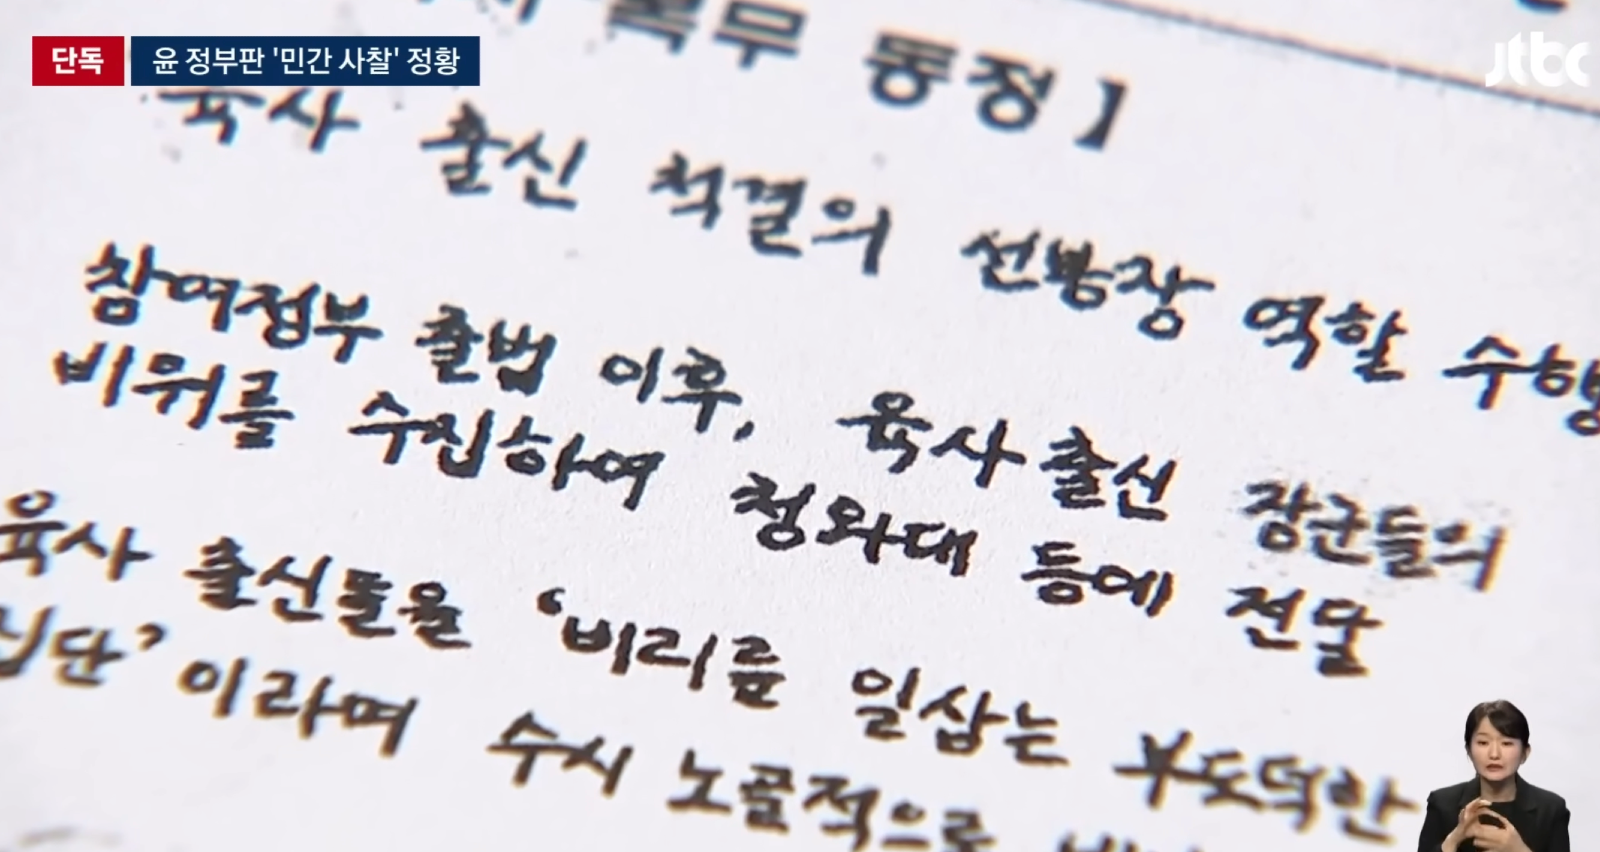 단독 윤 정부판 '민간 사찰' 정황
jtbc
복무 동정】
육사 출신 척결의 선봉장 역할 수행
참여정부 출범 이후, 육사 출신 장군들의
비위를 수집하여 청와대 등에 전달
육사 출신들을 '비리를 일삼는 부도덕한
집단'이라며 수시 노골적으로